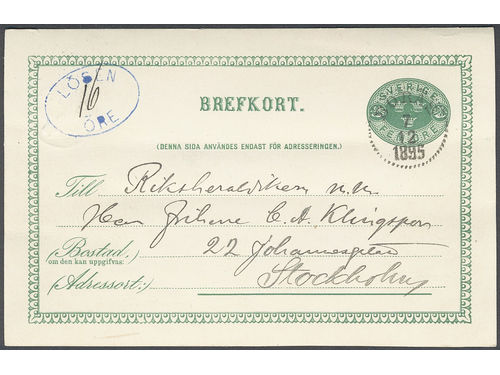 LÖSEN
16
ÖRE
SVERIGE
BREFKORT.
7
12
1895
(DENNA SIDA ANVÄNDES ENDAST FÖR ADRESSERINGEN.)
Till Riksheraldikern m.m.
Herr Friherre C. A. Klingspor
Bostad: 22 Johannesgatan
(om den kan uppgifvas:)
(Adressort:) Stockholm